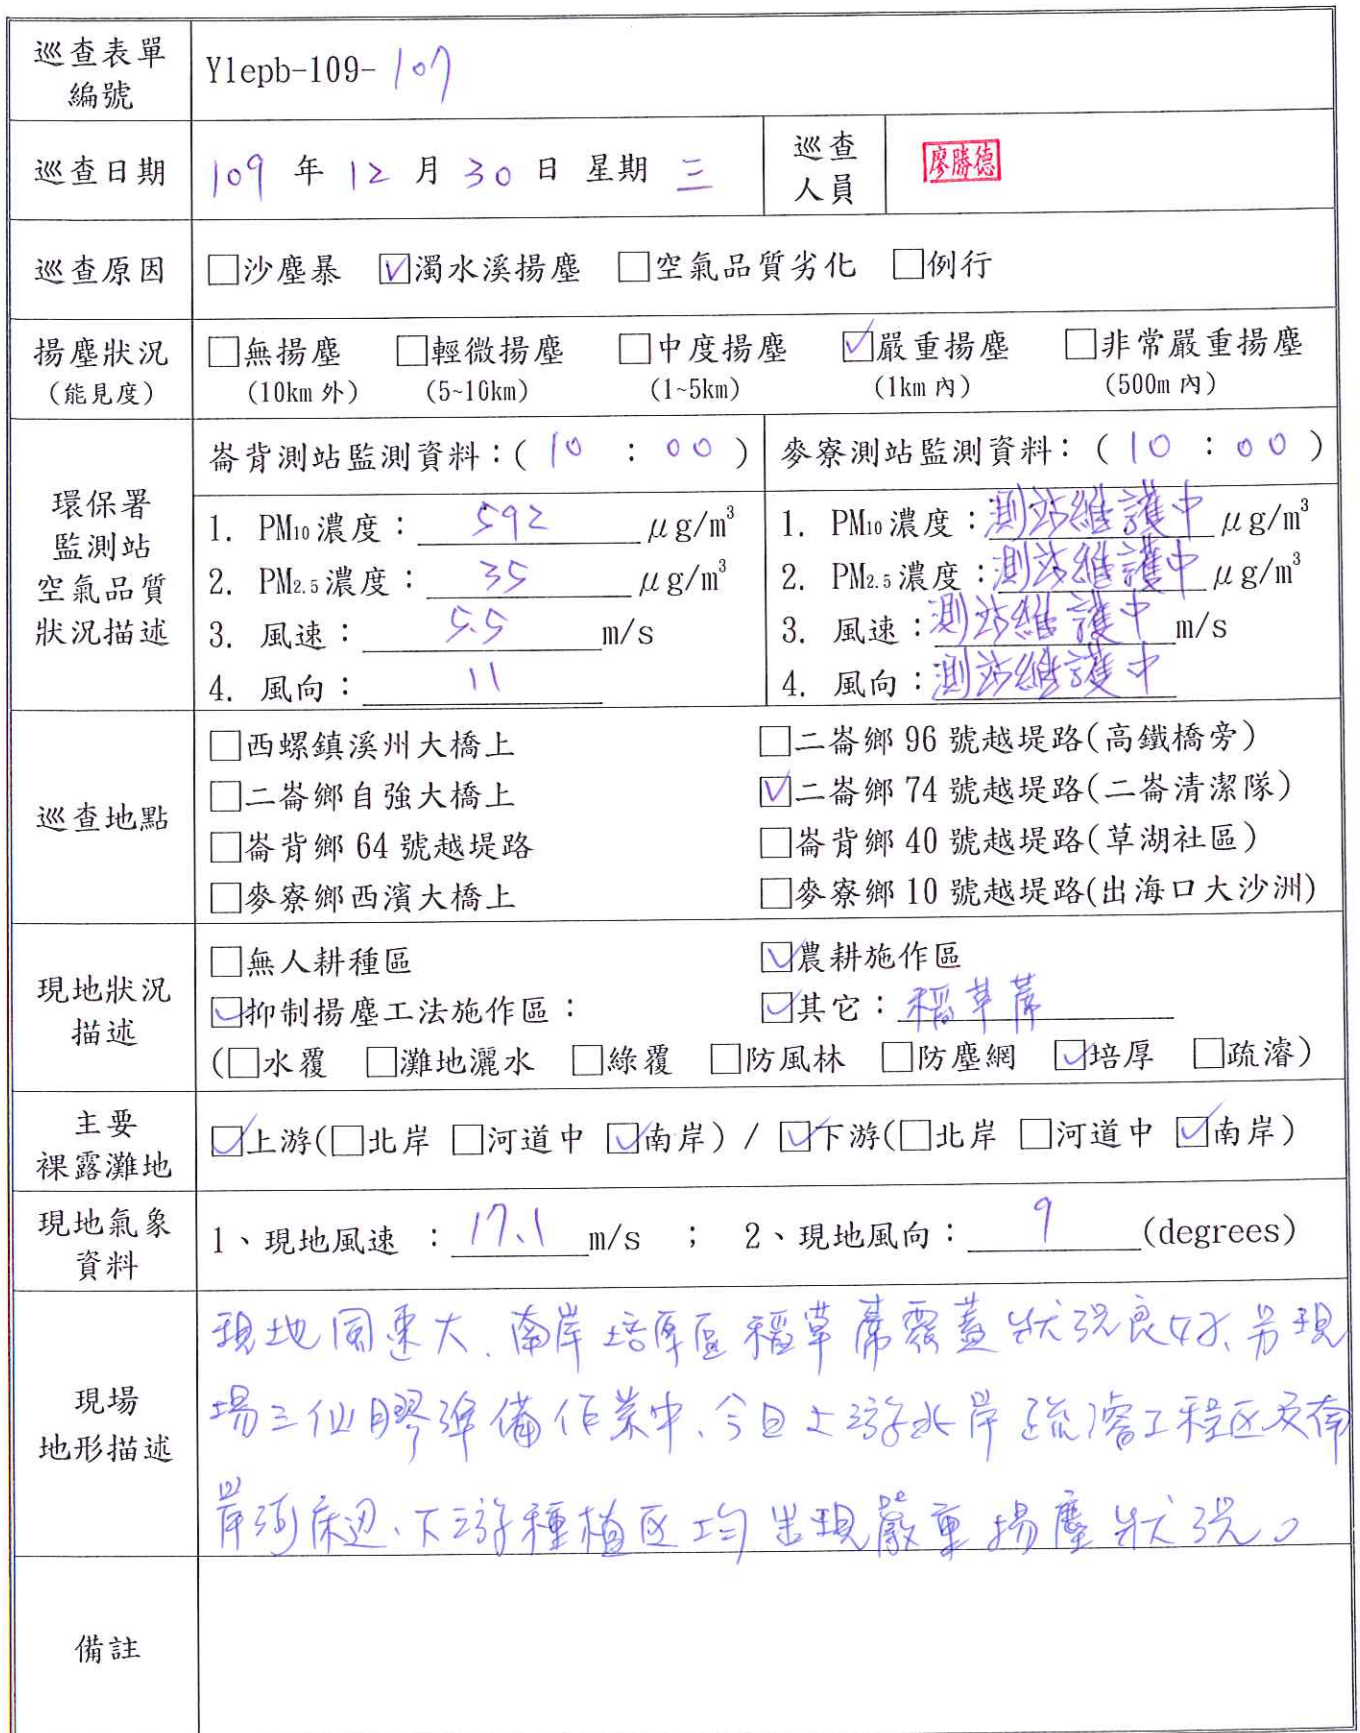 巡查表單編號 Ylepb-109-107
巡查日期 109 年 12 月 30 日 星期 三 巡查人員 廖勝德
巡查原因 □沙塵暴 ☑濁水溪揚塵 □空氣品質劣化 □例行
揚塵狀況 □無揚塵 □輕微揚塵 □中度揚塵 ☑嚴重揚塵 □非常嚴重揚塵
(能見度) (10km 外) (5~10km) (1~5km) (1km 內) (500m 內)
環保署監測站空氣品質狀況描述
崙背測站監測資料：( 10 : 00 )
1. PM10 濃度： 592 μg/m³
2. PM2.5 濃度： 35 μg/m³
3. 風速： 5.5 m/s
4. 風向： 11
麥寮測站監測資料： ( 10 : 00 )
1. PM10 濃度：測站維護中 μg/m³
2. PM2.5 濃度：測站維護中 μg/m³
3. 風速：測站維護中 m/s
4. 風向：測站維護中
巡查地點
□西螺鎮溪州大橋上 □二崙鄉 96 號越堤路(高鐵橋旁)
□二崙鄉自強大橋上 ☑二崙鄉 74 號越堤路(二崙清潔隊)
□崙背鄉 64 號越堤路 □崙背鄉 40 號越堤路(草湖社區)
□麥寮鄉西濱大橋上 □麥寮鄉 10 號越堤路(出海口大沙洲)
現地狀況描述
□無人耕種區 ☑農耕施作區
☑抑制揚塵工法施作區： ☑其它：稻草蓆
(□水覆 □灘地灑水 □綠覆 □防風林 □防塵網 ☑培厚 □疏濬)
主要裸露灘地 ☑上游(□北岸 □河道中 ☑南岸) / ☑下游(□北岸 □河道中 ☑南岸)
現地氣象資料 1、現地風速 ： 17.1 m/s ； 2、現地風向： 9 (degrees)
現場地形描述
現地風速大、南岸培厚區稻草蓆覆蓋狀況良好、另現
場三仙膠準備作業中、今日上游北岸疏濬工程区及南
岸河床边、下游種植区均出現嚴重揚塵狀況。
備註